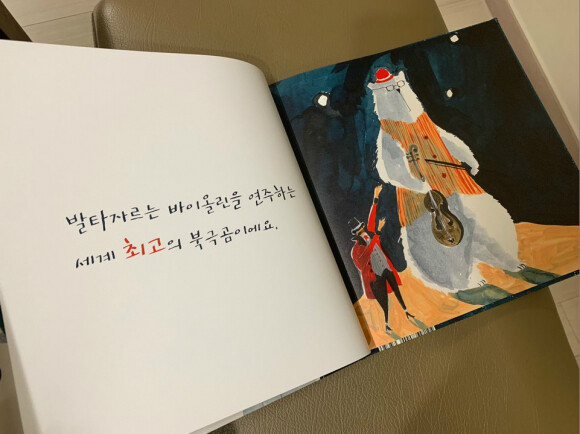 발타자르는 바이올린을 연주하는
세계 최고의 북극곰이에요.